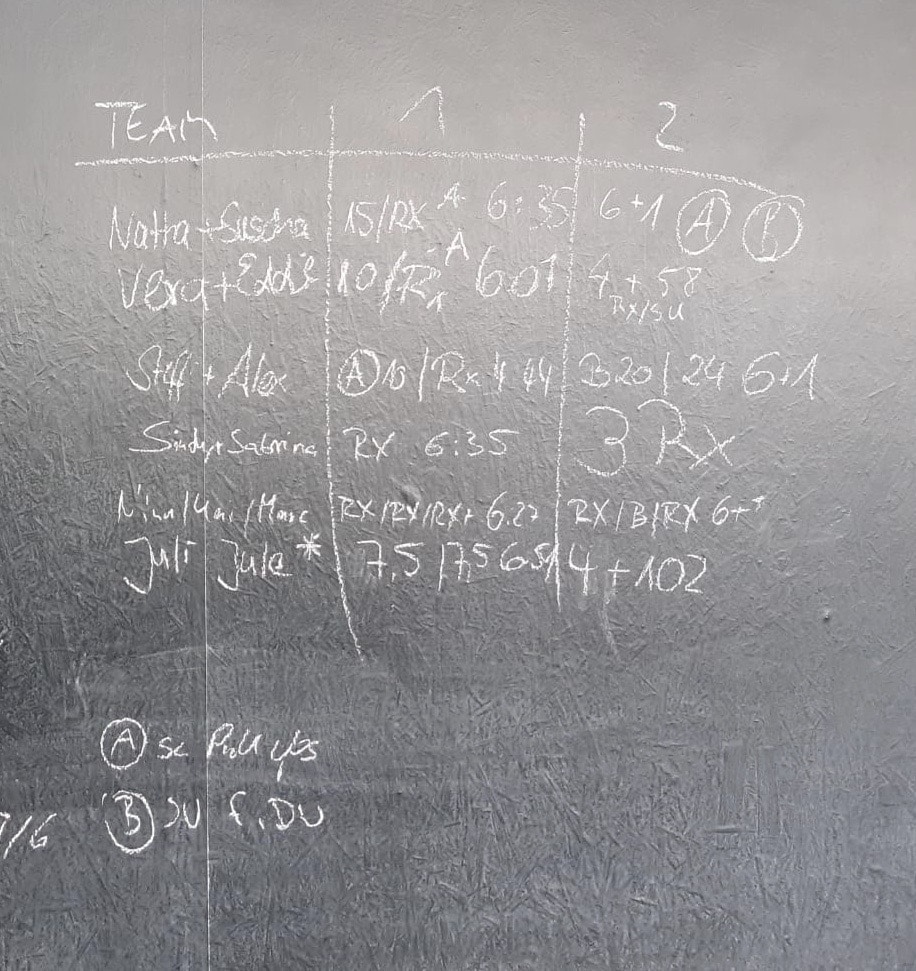 TEAM 1 2
Natta + Sascha 15/RX A 6:35 6+1 A B
Vera + Eddie 10/Rx A 6:01 4 + 58
RX/SU
Steffi + Alex A 10 / Rx 4 44 B 20 / 24 6+1
Sindy + Sabrina RX 6:35 3 Rx
Nina/Kai/Marc RX/RX/RX+ 6.27 RX/B/RX 6+
Juli Jule * 7,5 / 7,5 6:51 4 + 102
A sc Pull ups
B SU f. DU
7/6